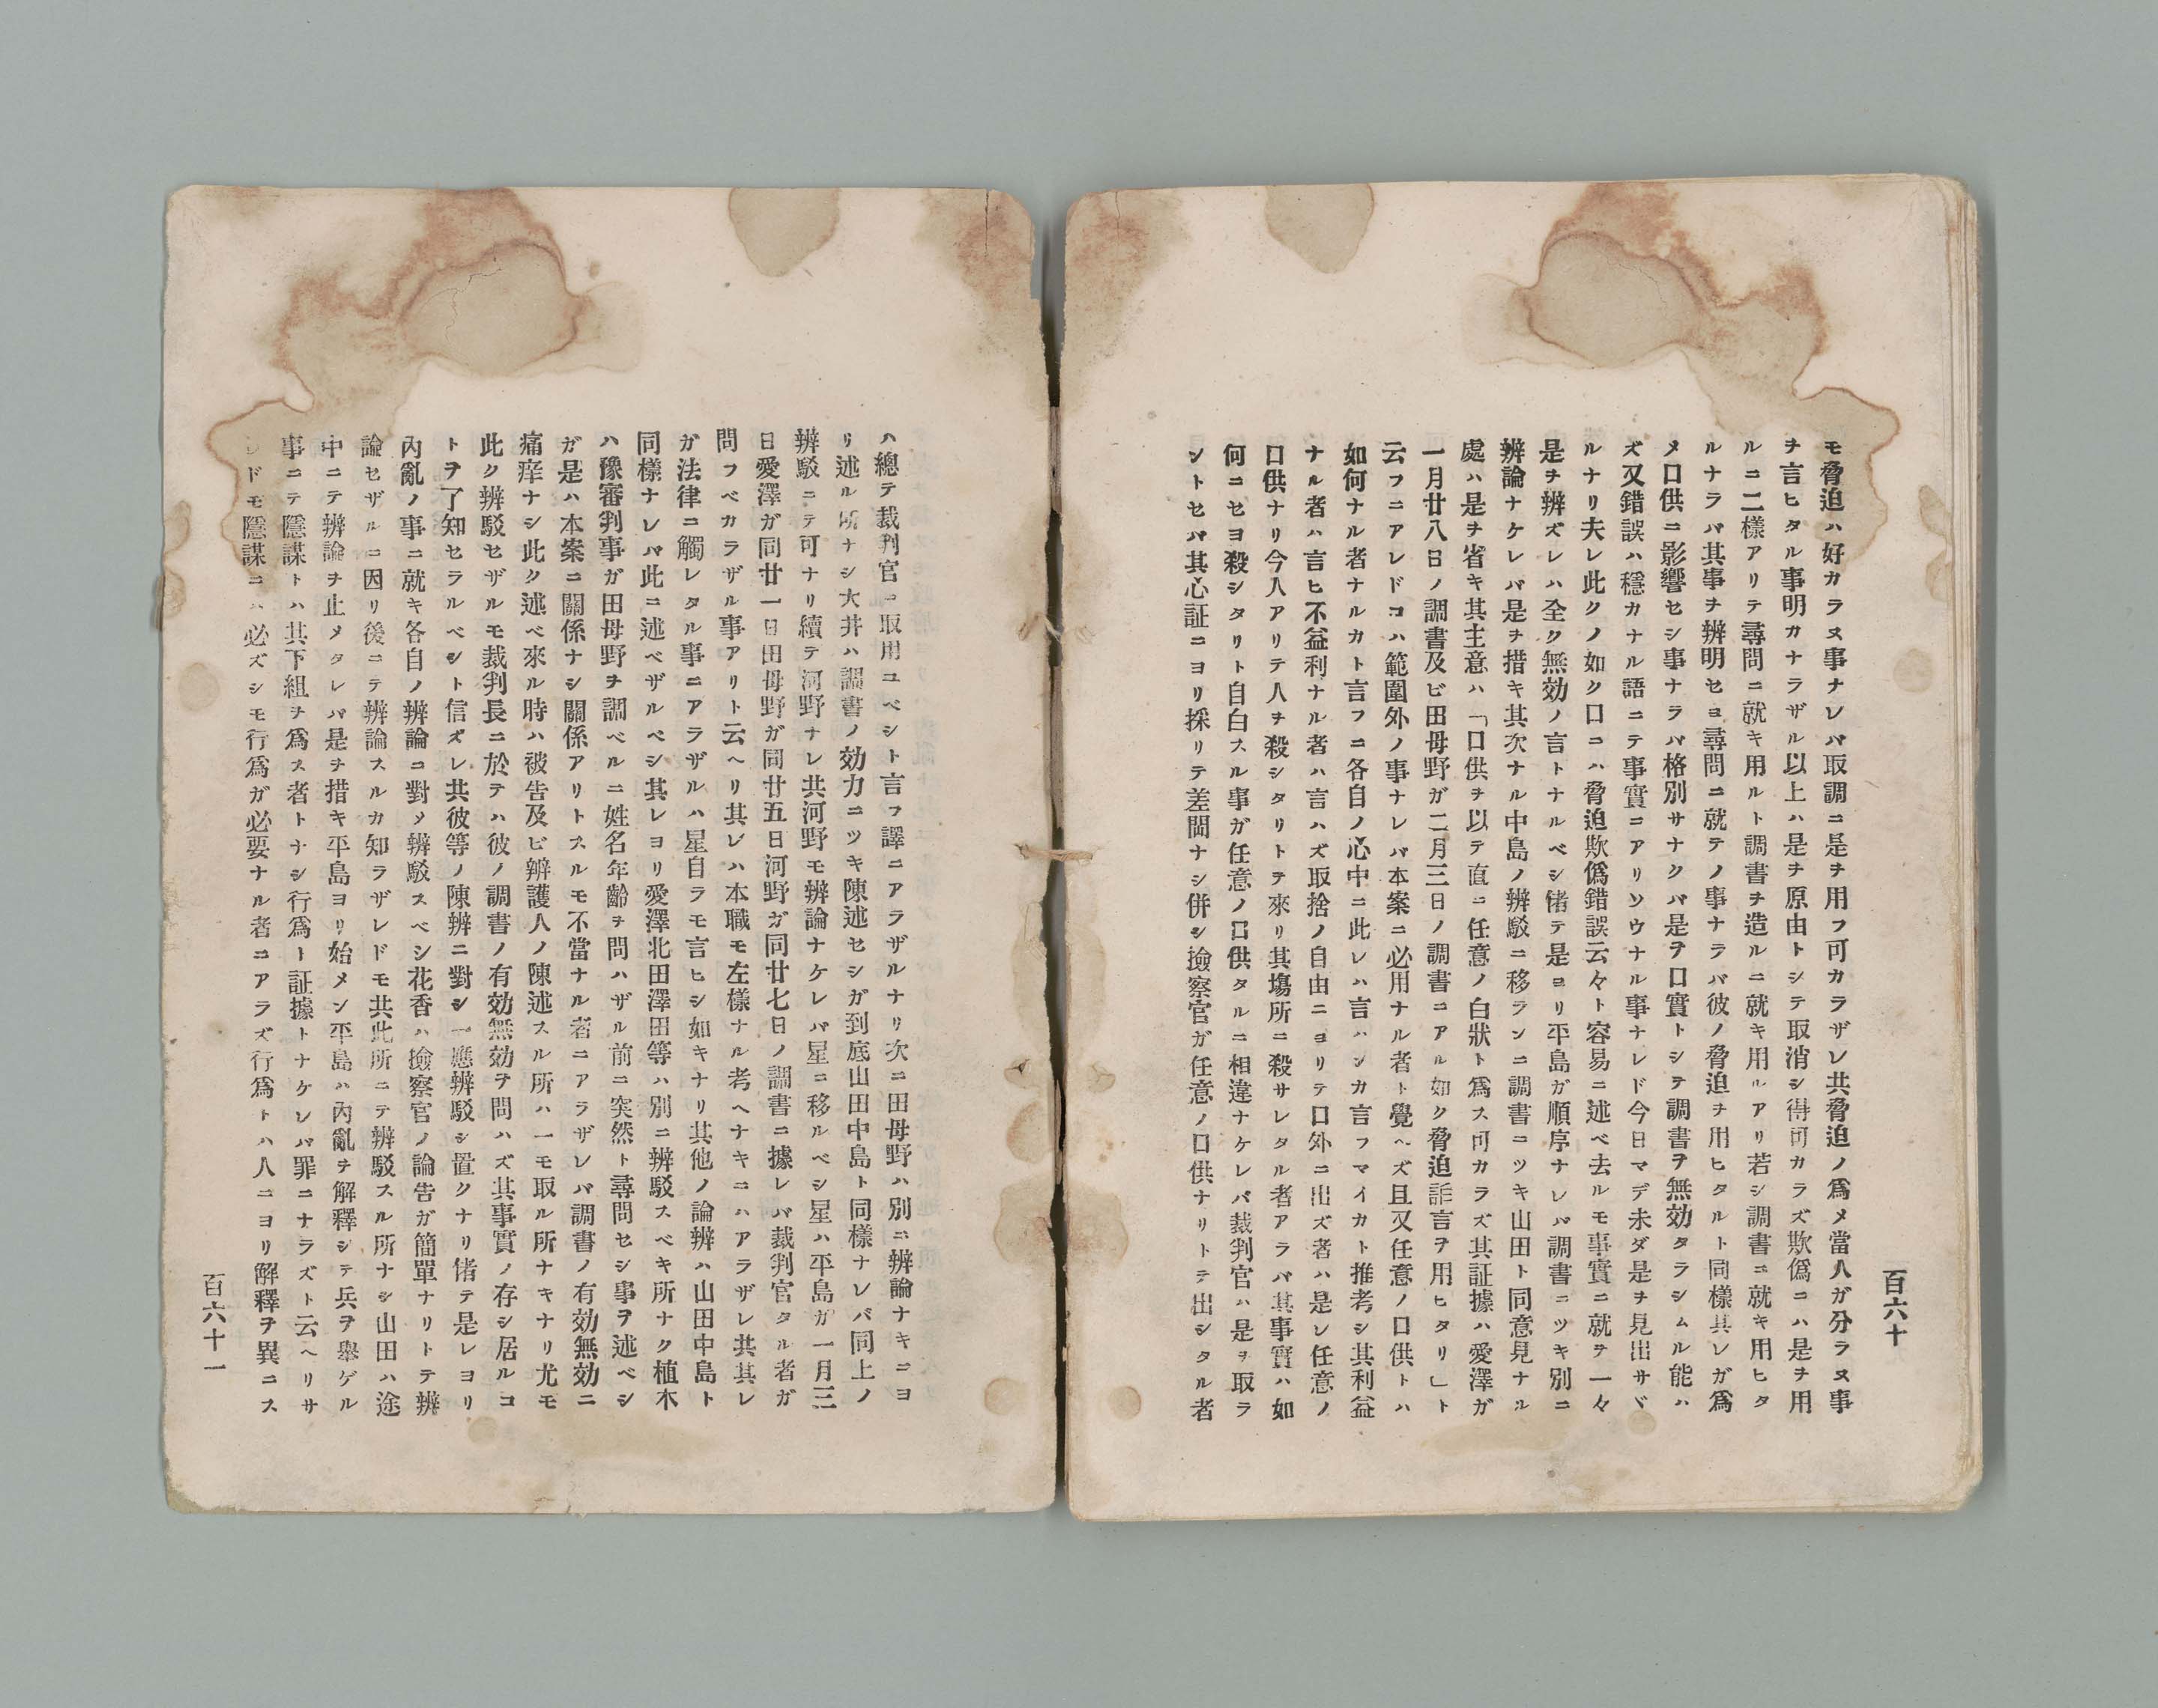 百六十
モ脅迫ハ好カラヌ事ナレバ取調ニ是ヲ用フ可カラザレ共脅迫ノ爲メ當人ガ分ラヌ事
ヲ言ヒタル事明カナラザル以上ハ是ヲ原由トシテ取消シ得可カラズ欺僞ニハ是ヲ用
ルニ二樣アリテ尋問ニ就キ用ルト調書ヲ造ルニ就キ用ルアリ若シ調書ニ就キ用ヒタ
ルナラバ其事ヲ辨明セヨ尋問ニ就テノ事ナラバ彼ノ脅迫ヲ用ヒタルト同樣其レガ爲
メ口供ニ影響セシ事ナラバ格別サナクバ是ヲ口實トシテ調書ヲ無効タラシムル能ハ
ズ又錯誤ハ穩カナル語ニテ事實ニアリソウナル事ナレド今日マデ未ダ是ヲ見出サヾ
ルナリ夫レ此クノ如ク口ニハ脅迫欺僞錯誤云々ト容易ニ述ベ去ルモ事實ニ就テ一々
是ヲ辨ズレハ全ク無効ノ言トナルベシ偖テ是ヨリ平島ガ順序ナレバ調書ニツキ別ニ
辨論ナケレバ是ヲ措キ其次ナル中島ノ辨駁ニ移ランニ調書ニツキ山田ト同意見ナル
處ハ是ヲ省キ其主意ハ「口供ヲ以テ直ニ任意ノ白狀ト爲ス可カラズ其証據ハ愛澤ガ
一月廿八日ノ調書及ビ田母野ガ二月三日ノ調書ニアル如ク脅迫詐言ヲ用ヒタリ」ト
云フニアレドコハ範圍外ノ事ナレバ本案ニ必用ナル者ト覺ヘズ且又任意ノ口供トハ
如何ナル者ナルカト言フニ各自ノ心中ニ此レハ言ハンカ言フマイカト推考シ其利益
ナル者ハ言ヒ不益利ナル者ハ言ハズ取捨ノ自由ニヨリテ口外ニ出ズ者ハ是レ任意ノ
口供ナリ今人アリテ人ヲ殺シタリトテ來リ其塲所ニ殺サレタル者アラバ其事實ハ如
何ニセヨ殺シタリト自白スル事ガ任意ノ口供タルニ相違ナケレバ裁判官ハ是ヲ取ラ
ントセバ其心証ニヨリ採リテ差閊ナシ併シ撿察官ガ任意ノ口供ナリトテ出シタル者
ハ總テ裁判官ニ取用ユベシト言フ譯ニアラザルナリ次ニ田母野ハ別ニ辨論ナキニヨ
リ述ル所ナシ大井ハ調書ノ効力ニツキ陳述セシガ到底山田中島ト同樣ナレバ同上ノ
辨駁ニテ可ナリ續テ河野ナレ共河野モ辨論ナケレバ星ニ移ルベシ星ハ平島ガ一月三
日愛澤ガ同廿一日田母野ガ同廿五日河野ガ同廿七日ノ調書ニ據レバ裁判官タル者ガ
問フベカラザル事アリト云ヘリ其レハ本職モ左樣ナル考ヘナキニハアラザレ共其レ
ガ法律ニ觸レタル事ニアラザルハ星自ラモ言ヒシ如キナリ其他ノ論辨ハ山田中島ト
同樣ナレバ此ニ述ベザルベシ其レヨリ愛澤北田澤田等ハ別ニ辨駁スベキ所ナク植木
ハ豫審判事ガ田母野ヲ調ベルニ姓名年齡ヲ問ハザル前ニ突然ト尋問セシ事ヲ述ベシ
ガ是ハ本案ニ關係ナシ關係アリトスルモ不當ナル者ニアラザレバ調書ノ有効無効ニ
痛痒ナシ此ク述ベ來ル時ハ被告及ビ辨護人ノ陳述スル所ハ一モ取ル所ナキナリ尤モ
此ク辨駁セザルモ裁判長ニ於テハ彼ノ調書ノ有効無効ヲ問ハズ其事實ノ存シ居ルコ
トヲ了知セラルベシト信ズレ共彼等ノ陳辨ニ對シ一應辨駁シ置クナリ偖テ是レヨリ
內亂ノ事ニ就キ各自ノ辨論ニ對メ辨駁スベシ花香ハ撿察官ノ論告ガ簡單ナリトテ辨
論セザルニ因リ後ニテ辨論スルカ知ラザレドモ共此所ニテ辨駁スル所ナシ山田ハ途
中ニテ辨論ヲ止メタレバ是ヲ措キ平島ヨリ始メン平島ハ內亂ヲ解釋シテ兵ヲ舉ゲル
事ニテ隱謀トハ其下組ヲ爲ス者トナシ行爲ト証據トナケレバ罪ニナラズト云ヘリサ
レドモ隱謀ニハ必ズシモ行爲ガ必要ナル者ニアラズ行爲トハ人ニヨリ解釋ヲ異ニス
百六十一